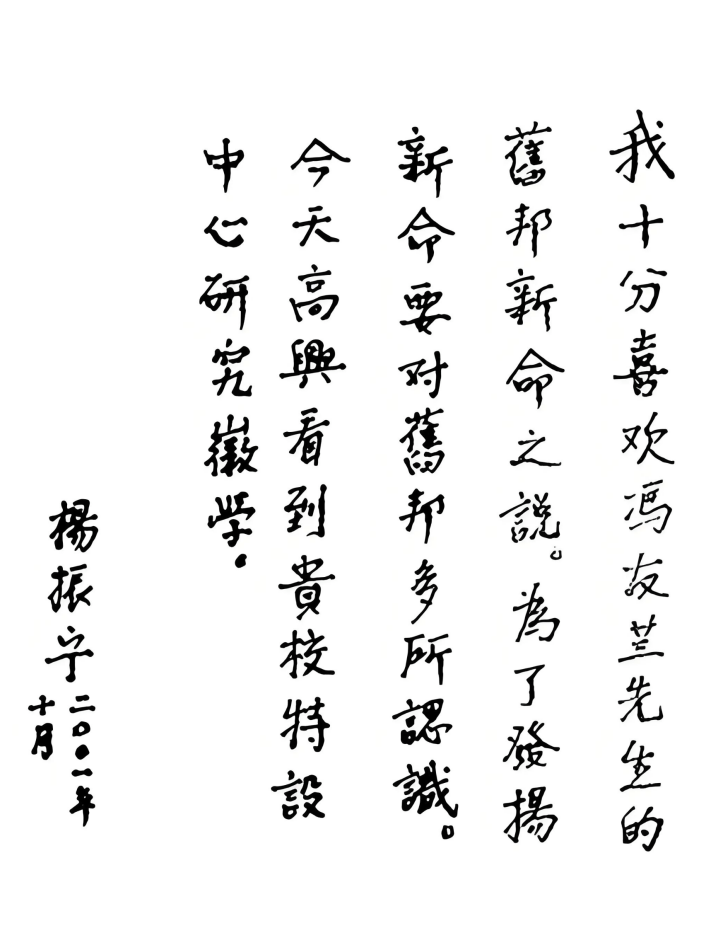 我十分喜欢馮友兰先生的
舊邦新命之說。為了發揚
新命要对舊邦多所認識。
今天高興看到貴校特設
中心研究徽学。
楊振宁
二〇〇一年
十月